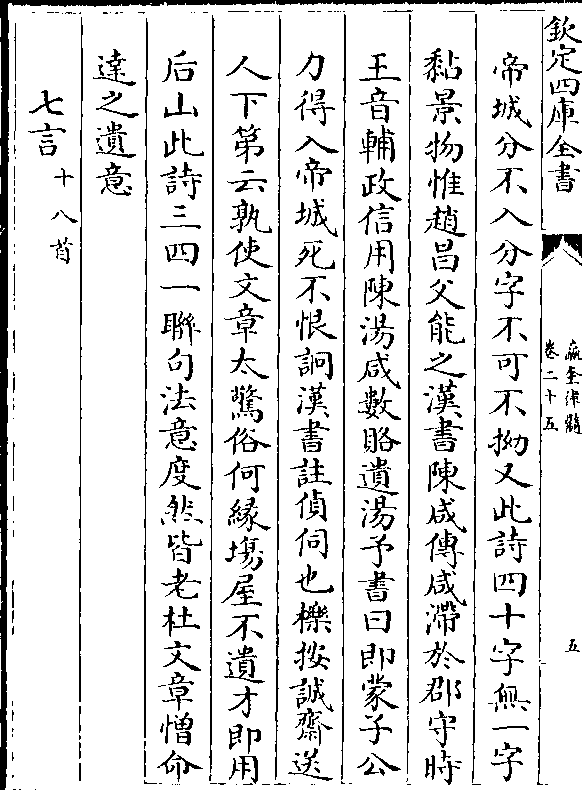 欽定四庫全書
瀛奎律髓
卷二十五
五
帝城分不入分字不可不拗又此詩四十字無一字
黏景物惟趙昌父能之漢書陳咸傳咸滯於郡守時
王音輔政信用陳湯咸數賂遺湯予書曰即蒙子公
力得入帝城死不恨詗漢書註偵伺也櫟按誠齋送
人下第云孰使文章太驚俗何緣塲屋不遺才即用
后山此詩三四一聯句法意度然皆老杜文章憎命
達之遺意
七言十八首